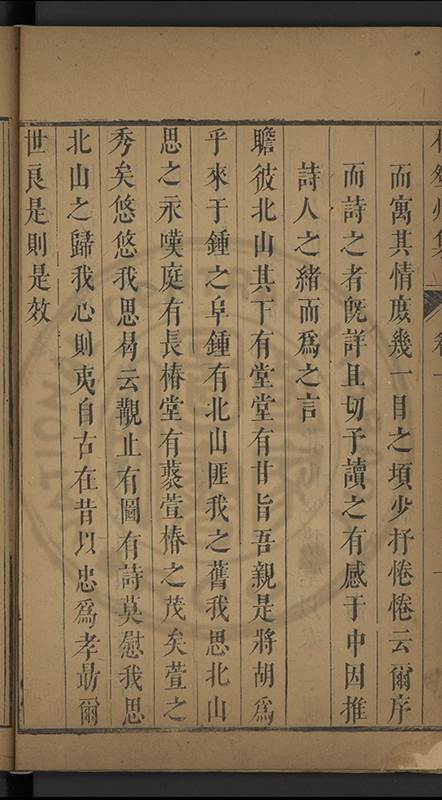 而寓其情庶幾一目之頃少抒惓惓云爾序
而詩之者旣詳且切予讀之有感于中因推
詩人之緒而爲之言
瞻彼北山其下有堂堂有甘旨吾親是將胡爲
乎來于鍾之阜鍾有北山匪我之舊我思北山
思之永嘆庭有長椿堂有藂萱椿之茂矣萱之
秀矣悠悠我思曷云覯止有圖有詩莫慰我思
北山之歸我心則夷自古在昔以忠爲孝勗爾
世良是則是效